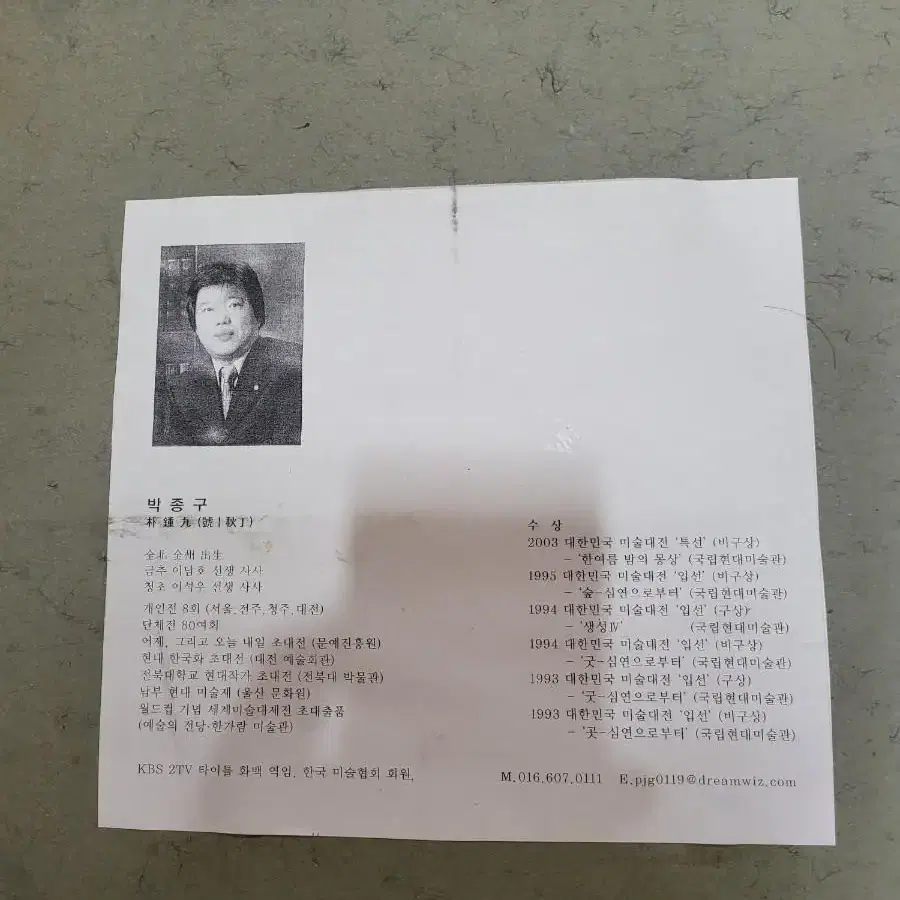 박 종 구
朴 鍾 九 (號ㅣ秋丁)
全北 全州 出生
금추 이남호 선생 사사
청초 이석우 선생 사사
개인전 8회 (서울.전주.청주.대전)
단체전 80여회
어제, 그리고 오늘 내일 초대전 (문예진흥원)
현대 한국화 초대전 (대전 예술회관)
전북대학교 현대작가 초대전 (전북대 박물관)
남부 현대 미술제 (울산 문화원)
월드컵 기념 세계미술대제전 초대출품
(예술의 전당·한가람 미술관)
KBS 2TV 타이틀 화백 역임. 한국 미술협회 회원.
수 상
2003 대한민국 미술대전 '특선' (비구상)
- '한여름 밤의 몽상' (국립현대미술관)
1995 대한민국 미술대전 '입선' (비구상)
- '숲-심연으로부터' (국립현대미술관)
1994 대한민국 미술대전 '입선' (구상)
- '생성Ⅳ' (국립현대미술관)
1994 대한민국 미술대전 '입선' (비구상)
- '굿-심연으로부터' (국립현대미술관)
1993 대한민국 미술대전 '입선' (구상)
- '굿-심연으로부터' (국립현대미술관)
1993 대한민국 미술대전 '입선' (비구상)
- '곳-심연으로부터' (국립현대미술관)
M.016.607.0111 E.pjg0119@dreamwiz.com